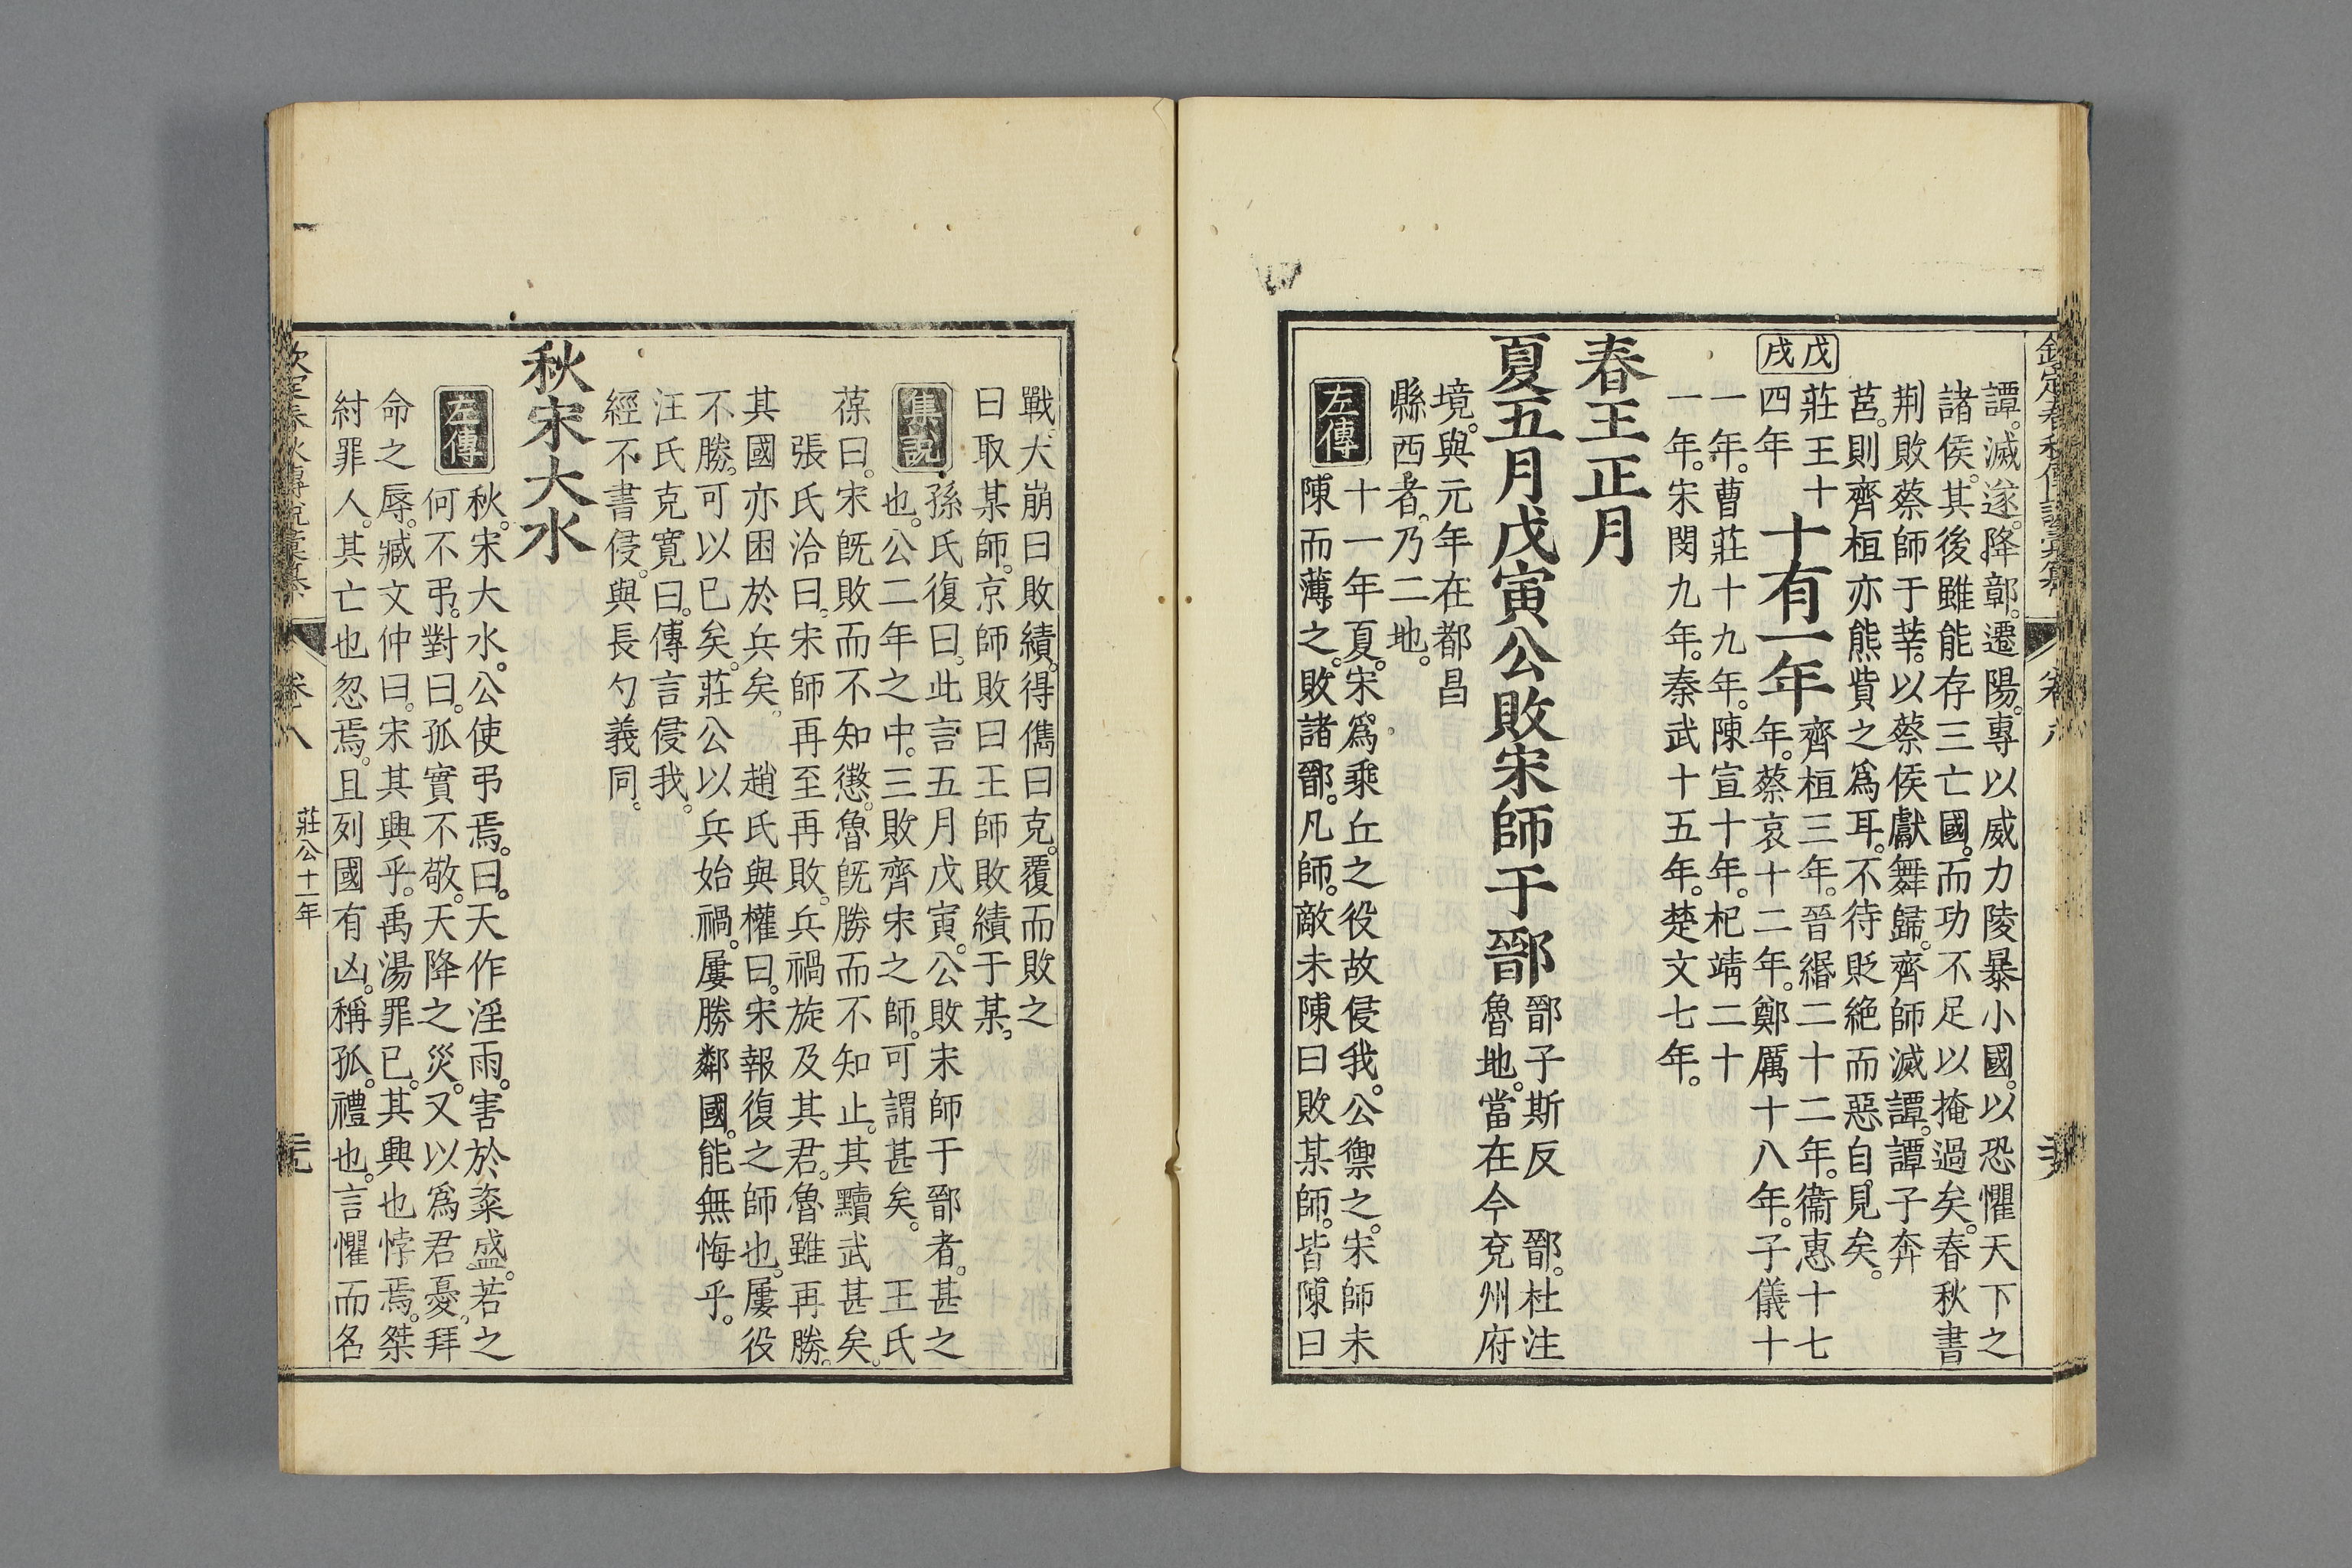 譚。滅遂。降鄣。遷陽。專以威力陵暴小國。以恐懼天下之
諸侯。其後雖能存三亡國。而功不足以掩過矣。春秋書
荆敗蔡師于莘。以蔡侯獻舞歸。齊師滅譚。譚子奔
莒。則齊桓亦熊貲之爲耳。不待貶絶而惡自見矣。
戊戌
莊王十四年
十有一年
齊桓三年。晉緡二十二年。衞惠十七
年。蔡哀十二年。鄭厲十八年。子儀十
一年。曹莊十九年。陳宣十年。杞靖二十
一年。宋閔九年。秦武十五年。楚文七年。
春王正月
夏五月戊寅公敗宋師于鄑
鄑子斯反 鄑。杜注
魯地。當在今兗州府
境。與元年在都昌
縣西者。乃二地。
左傳
十一年夏。宋爲乘丘之役故侵我。公禦之。宋師未
陳而薄之。敗諸鄑。凡師。敵未陳曰敗某師。皆陳曰
戰。大崩曰敗績。得儁曰克。覆而敗之
曰取某師。京師敗曰王師敗績于某。
集說
孫氏復曰。此言五月戊寅。公敗宋師于鄑者。甚之
也。公二年之中。三敗齊宋之師。可謂甚矣。 王氏
葆曰。宋旣敗而不知懲。魯旣勝而不知止。其黷武甚矣。
張氏洽曰。宋師再至再敗。兵禍旋及其君。魯雖再勝。
其國亦困於兵矣。 趙氏與權曰。宋報復之師也。屢役
不勝。可以已矣。莊公以兵始禍。屢勝鄰國。能無悔乎。
汪氏克寬曰。傳言侵我。
經不書侵。與長勺義同。
秋宋大水
左傳
秋。宋大水。公使弔焉。曰。天作淫雨。害於粢盛。若之
何不弔。對曰。孤實不敬。天降之災。又以爲君憂。拜
命之辱。臧文仲曰。宋其興乎。禹湯罪已。其興也悖焉。桀
紂罪人。其亡也忽焉。且列國有凶。稱孤。禮也。言懼而名
卷八
莊公十一年